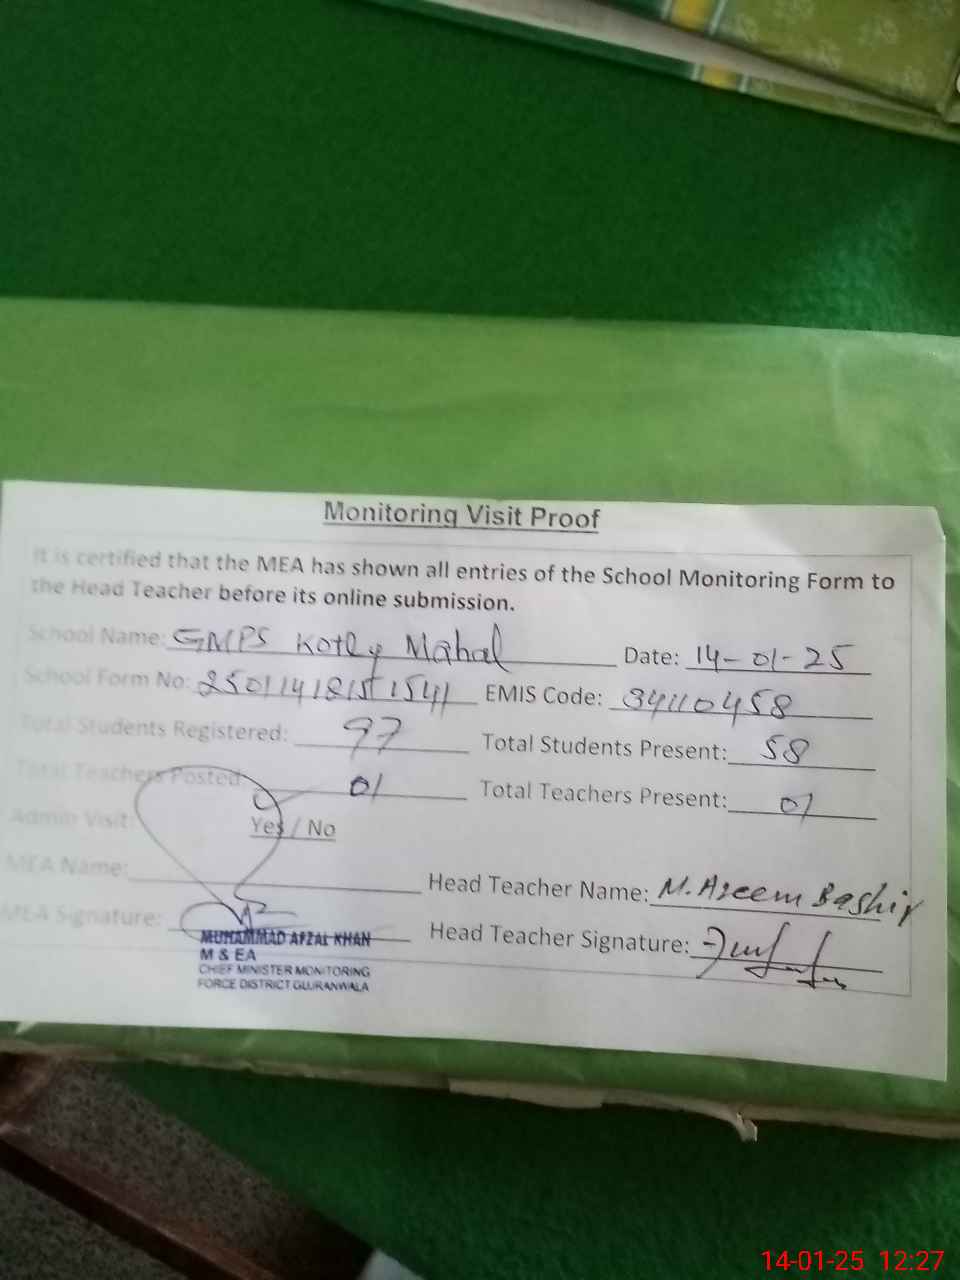 Monitoring Visit Proof
It is certified that the MEA has shown all entries of the School Monitoring Form to
the Head Teacher before its online submission.
School Name: GMPS Kotly Mahal Date: 14-01-25
School Form No: EMIS Code: 34110458
Total Students Registered: 97 Total Students Present: 58
Total Teachers Posted: 01 Total Teachers Present: 01
Admin Visit: Yes / No
MEA Name: Head Teacher Name: M. Azeem Bashir
MEA Signature: Head Teacher Signature:
MUHAMMAD AFZAL KHAN
M & EA
CHIEF MINISTER MONITORING
FORCE DISTRICT GUJRANWALA
14-01-25 12:27